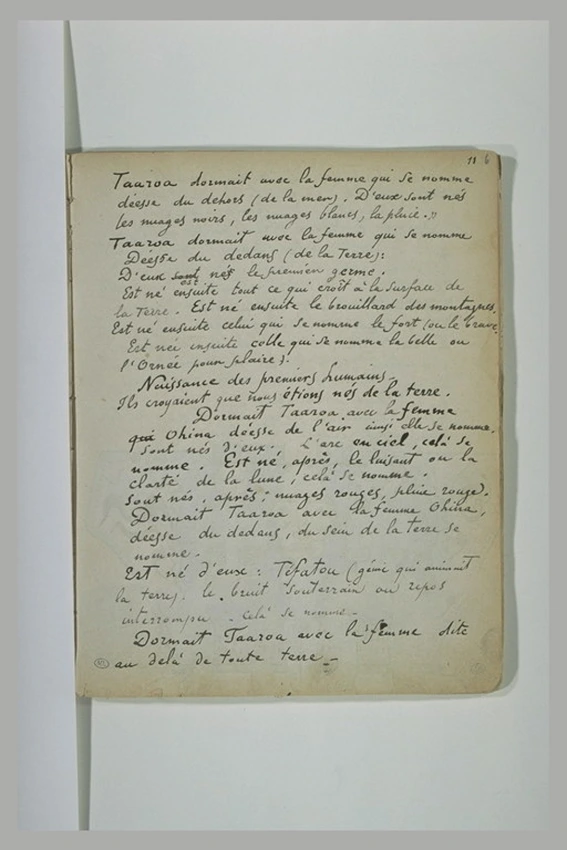 11 6
Taaroa dormait avec la femme qui se nomme
déesse du dehors (de la mer). D'eux sont nés
les nuages noirs, les nuages blancs, la pluie."
Taaroa dormait avec la femme qui se nomme
Déesse du dedans (de la Terre):
D'eux sont nés le premier germe.
est
Est né ensuite tout ce qui croît à la surface de
la Terre. Est né ensuite le brouillard des montagnes.
Est né ensuite celui qui se nomme le fort (ou le brave.
Est née ensuite celle qui se nomme la belle ou
l'Ornée pour plaire).
Naissance des premiers humains.
Ils croyaient que nous étions nés de la terre.
Dormait Taaroa avec la femme
qui Ohina déesse de l'air ainsi elle se nomme.
Sont nés d'eux. L'arc en ciel, celà se
nomme. Est né, après, le luisant ou la
clarté de la lune; celà se nomme.
Sont nés, après; nuages rouges, pluie rouge).
Dormait Taaroa avec la femme Ohina,
déesse du dedans, du sein de la terre se
nomme.
Est né d'eux: Téfatou (génie qui animait
la terre): le bruit souterrain ou repos
interrompu - celà se nomme -
Dormait Taaroa avec la femme dite
au delà de toute terre -